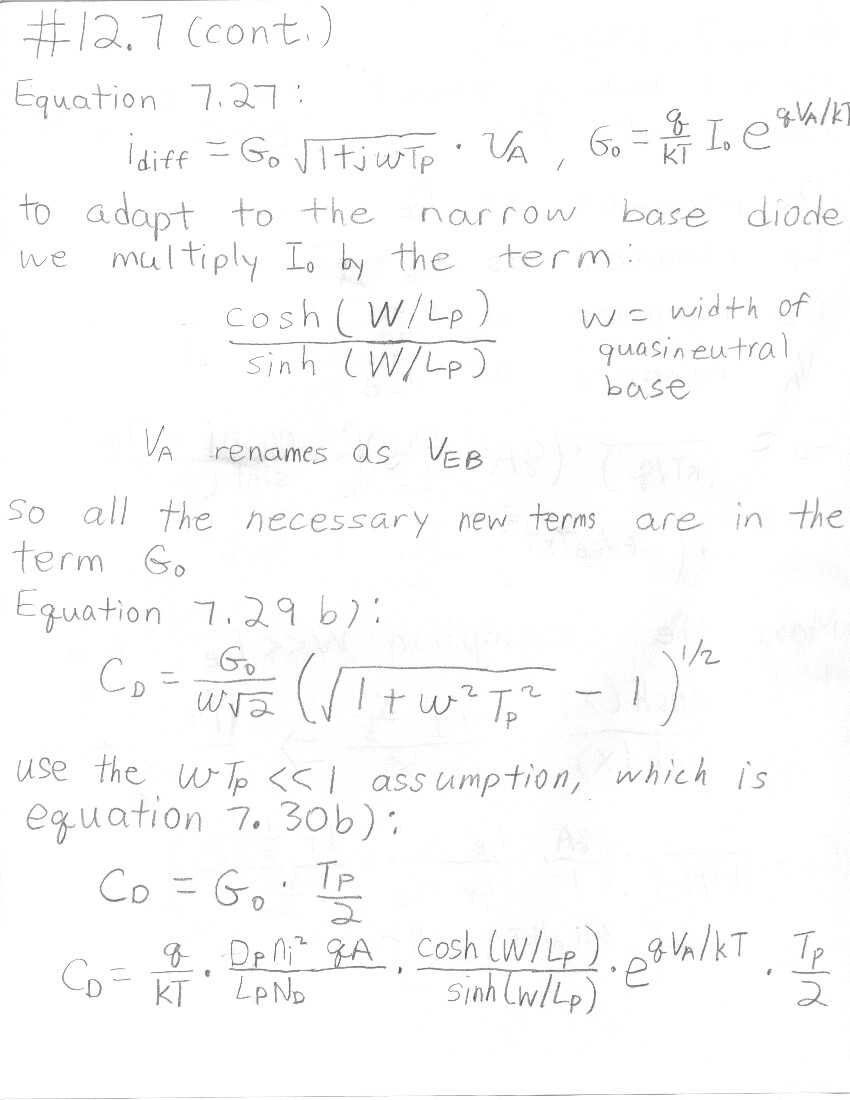 #12.7 (cont.)
Equation 7.27:
i_diff = G₀ √(1+jωTp) · VA , G₀ = q/kT I₀ e^(qVA/kT)
to adapt to the narrow base diode
we multiply I₀ by the term:
cosh(W/Lp) / sinh(W/Lp) W = width of
quasineutral
base
VA renames as VEB
so all the necessary new terms are in the
term G₀
Equation 7.29 b):
CD = G₀/(W√2) (√(1+w²Tp²) − 1)^(1/2)
use the wTp << 1 assumption, which is
equation 7.30b):
CD = G₀ · Tp/2
CD = q/kT · (Dp ni² qA)/(Lp ND) · cosh(W/Lp)/sinh(W/Lp) · e^(qVA/kT) · Tp/2